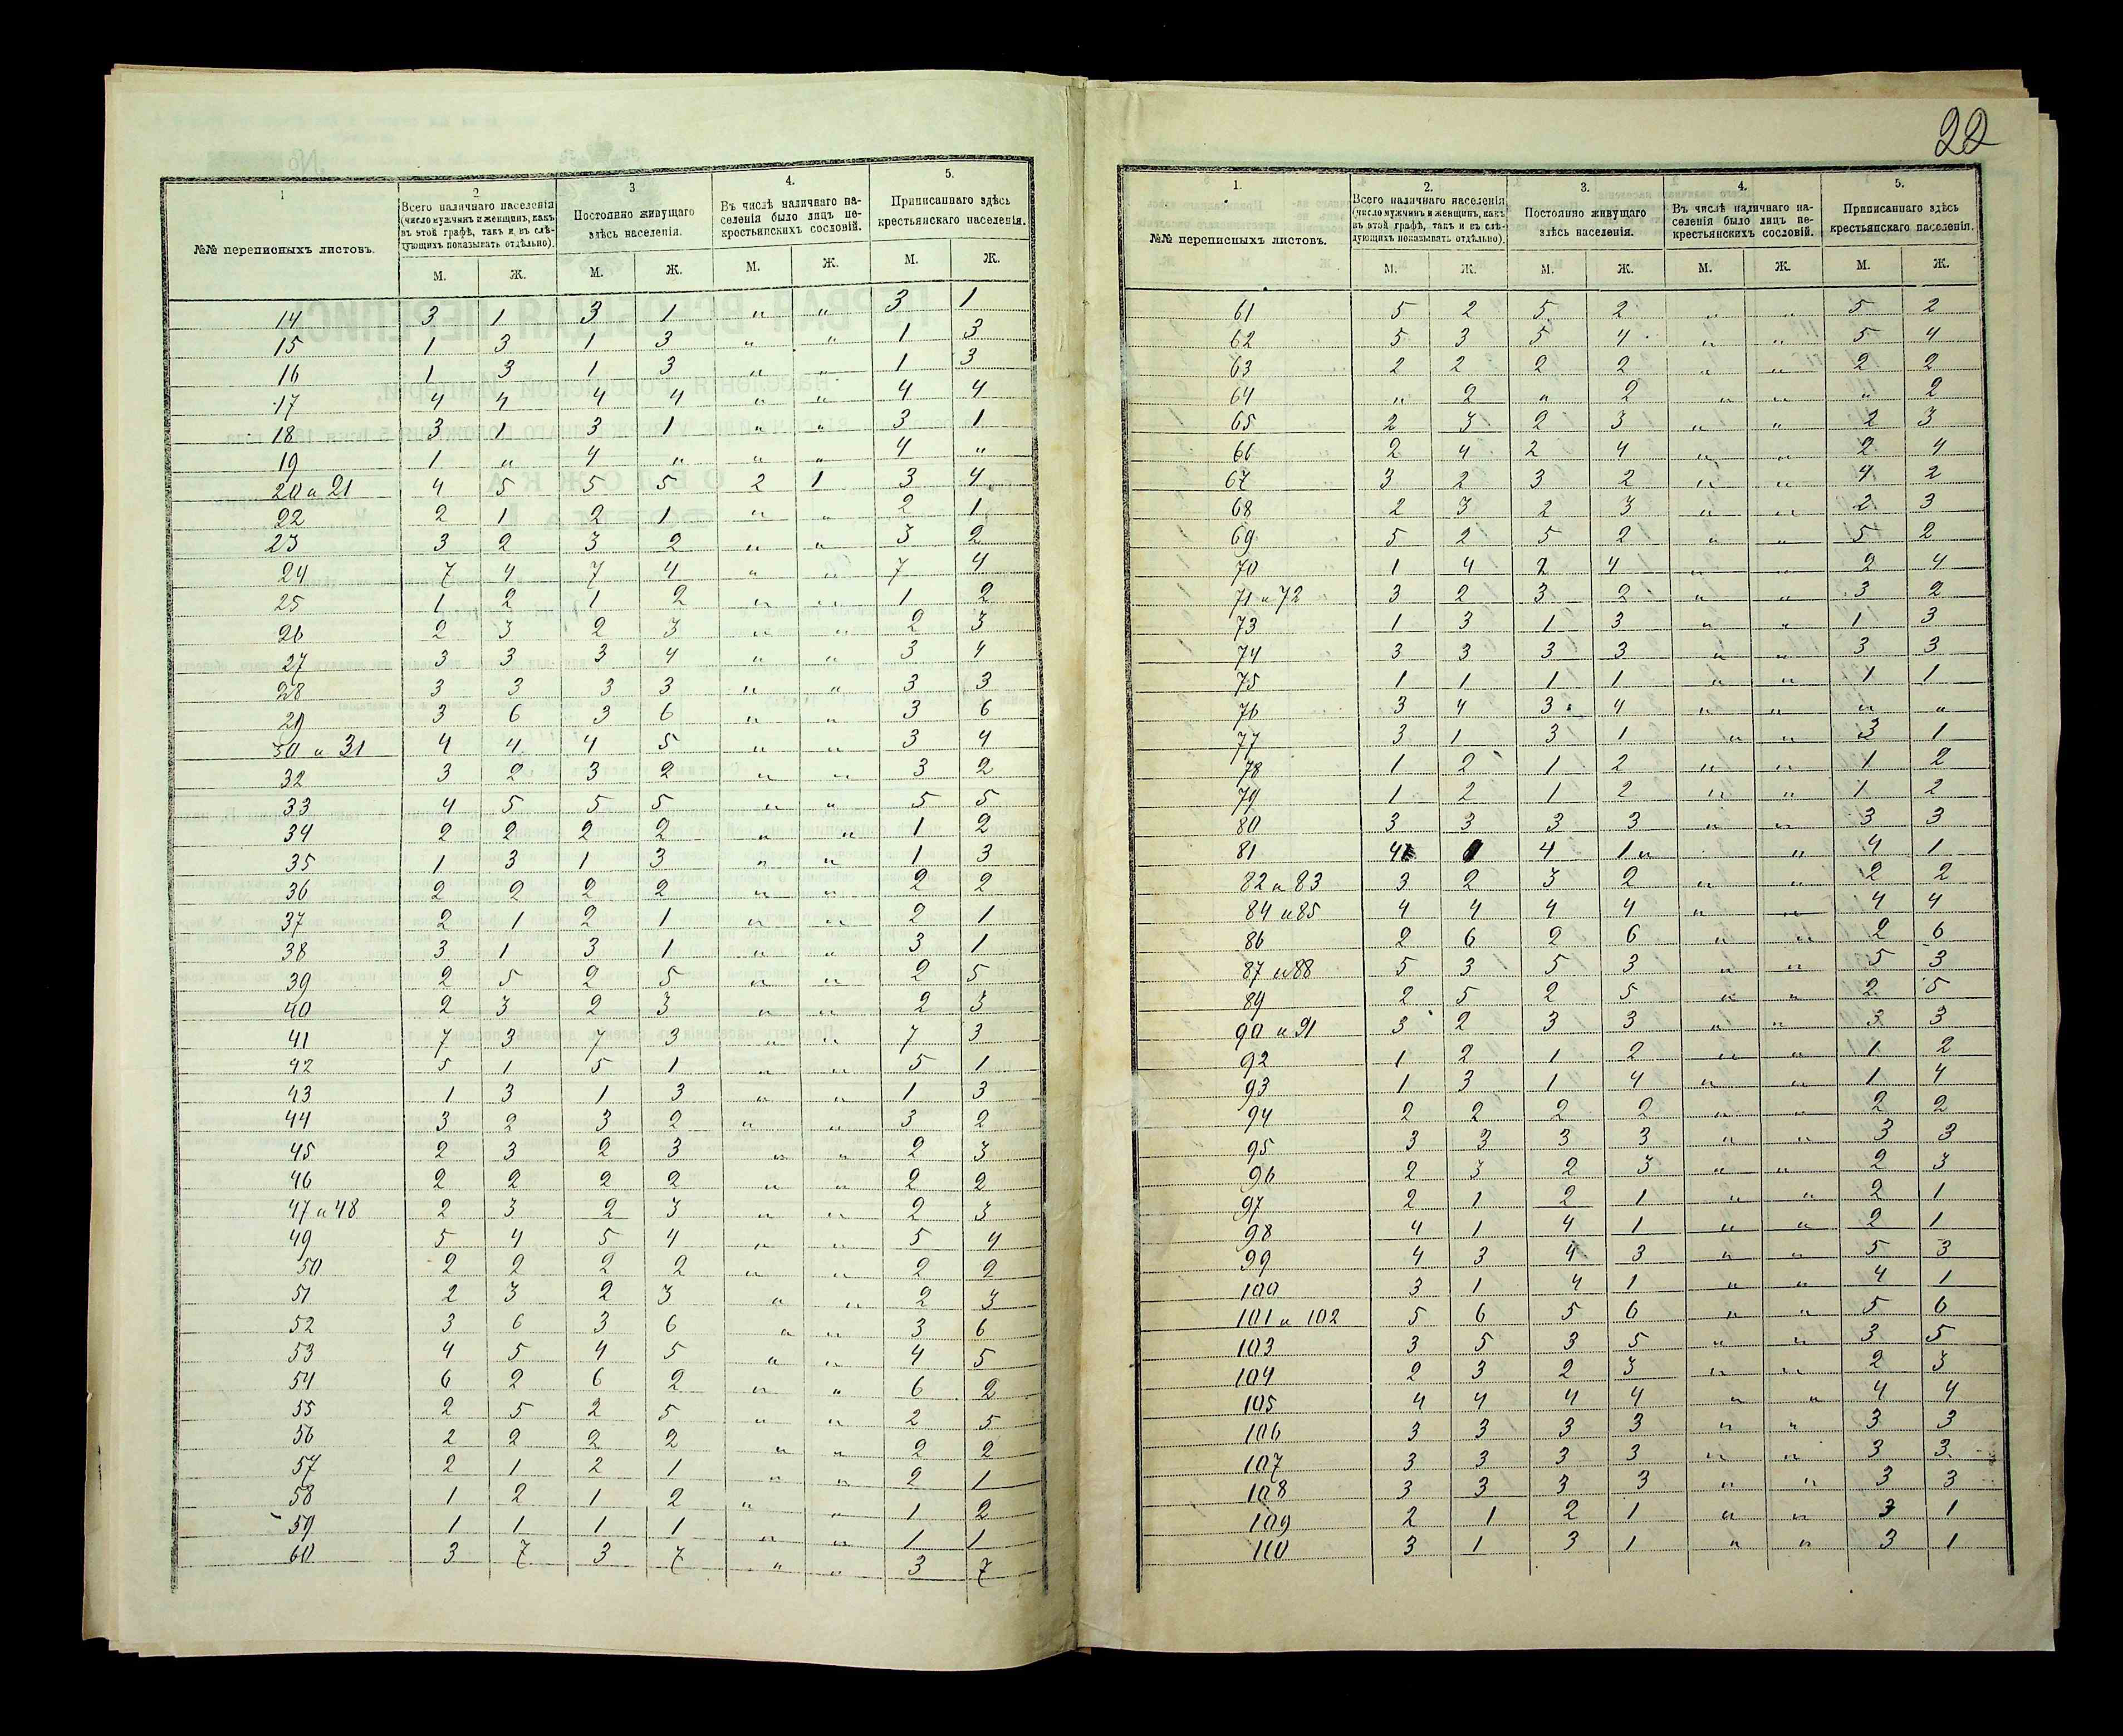 22
1 2 3 4. 5.
№№ переписныхъ листовъ. Всего наличнаго населенія (число мужчинъ и женщинъ, какъ въ этой графѣ, такъ и въ слѣдующихъ показывать отдѣльно). Постоянно живущаго здѣсь населенія. Въ числѣ наличнаго населенія было лицъ не-крестьянскихъ сословій. Приписаннаго здѣсь крестьянскаго населенія.
М. Ж. М. Ж. М. Ж. М. Ж.
14 3 1 3 1 „ „ 3 1
15 1 3 1 3 „ „ 1 3
16 1 3 1 3 „ „ 1 3
17 4 4 4 4 „ „ 4 4
18 3 1 3 1 „ „ 3 1
19 1 „ 4 „ „ „ 4 „
20 и 21 4 5 5 5 2 1 3 4
22 2 1 2 1 „ „ 2 1
23 3 2 3 2 „ „ 3 2
24 7 4 7 4 „ „ 7 4
25 1 2 1 2 „ „ 1 2
26 2 3 2 3 „ „ 2 3
27 3 3 3 4 „ „ 3 4
28 3 3 3 3 „ „ 3 3
29 3 6 3 6 „ „ 3 6
30 и 31 4 4 4 5 „ „ 3 4
32 3 2 3 2 „ „ 3 2
33 4 5 5 5 „ „ 5 5
34 2 2 2 2 „ „ 1 2
35 1 3 1 3 „ „ 1 3
36 2 2 2 2 „ „ 2 2
37 2 1 2 1 „ „ 2 1
38 3 1 3 1 „ „ 3 1
39 2 5 2 5 „ „ 2 5
40 2 3 2 3 „ „ 2 3
41 7 3 7 3 „ „ 7 3
42 5 1 5 1 „ „ 5 1
43 1 3 1 3 „ „ 1 3
44 3 2 3 2 „ „ 3 2
45 2 3 2 3 „ „ 2 3
46 2 2 2 2 „ „ 2 2
47 и 48 2 3 2 3 „ „ 2 3
49 5 4 5 4 „ „ 5 4
50 2 2 2 2 „ „ 2 2
51 2 3 2 3 „ „ 2 3
52 3 6 3 6 „ „ 3 6
53 4 5 4 5 „ „ 4 5
54 6 2 6 2 „ „ 6 2
55 2 5 2 5 „ „ 2 5
56 2 2 2 2 „ „ 2 2
57 2 1 2 1 „ „ 2 1
58 1 2 1 2 „ „ 1 2
59 1 1 1 1 „ „ 1 1
60 3 7 3 7 „ „ 3 7
1. 2. 3. 4. 5.
№№ переписныхъ листовъ. Всего наличнаго населенія (число мужчинъ и женщинъ, какъ въ этой графѣ, такъ и въ слѣдующихъ показывать отдѣльно). Постоянно живущаго здѣсь населенія. Въ числѣ наличнаго населенія было лицъ не-крестьянскихъ сословій. Приписаннаго здѣсь крестьянскаго населенія.
М. Ж. М. Ж. М. Ж. М. Ж.
61 5 2 5 2 „ „ 5 2
62 5 3 5 4 „ „ 5 4
63 2 2 2 2 „ „ 2 2
64 „ 2 „ 2 „ „ „ 2
65 2 3 2 3 „ „ 2 3
66 2 4 2 4 „ „ 2 4
67 3 2 3 2 „ „ 4 2
68 2 3 2 3 „ „ 2 3
69 5 2 5 2 „ „ 5 2
70 1 4 2 4 „ „ 2 4
71 и 72 3 2 3 2 „ „ 3 2
73 1 3 1 3 „ „ 1 3
74 3 3 3 3 „ „ 3 3
75 1 1 1 1 „ „ 1 1
76 3 4 3 4 „ „ „ „
77 3 1 3 1 „ „ 3 1
78 1 2 1 2 „ „ 1 2
79 1 2 1 2 „ „ 1 2
80 3 3 3 3 „ „ 3 3
81 4 4 1 „ „ 4 1
82 и 83 3 2 3 2 „ „ 2 2
84 и 85 4 4 4 4 „ „ 4 4
86 2 6 2 6 „ „ 2 6
87 и 88 5 3 5 3 „ „ 5 3
89 2 5 2 5 „ „ 2 5
90 и 91 3 2 3 3 „ „ 3 3
92 1 2 1 2 „ „ 1 2
93 1 3 1 4 „ „ 1 4
94 2 2 2 2 „ „ 2 2
95 3 3 3 3 „ „ 3 3
96 2 3 2 3 „ „ 2 3
97 2 1 2 1 „ „ 2 1
98 4 1 4 1 „ „ 2 1
99 4 3 4 3 „ „ 5 3
100 3 1 4 1 „ „ 4 1
101 и 102 5 6 5 6 „ „ 5 6
103 3 5 3 5 „ „ 3 5
104 2 3 2 3 „ „ 2 3
105 4 4 4 4 „ „ 4 4
106 3 3 3 3 „ „ 3 3
107 3 3 3 3 „ „ 3 3
108 3 3 3 3 „ „ 3 3
109 2 1 2 1 „ „ 3 1
110 3 1 3 1 „ „ 3 1